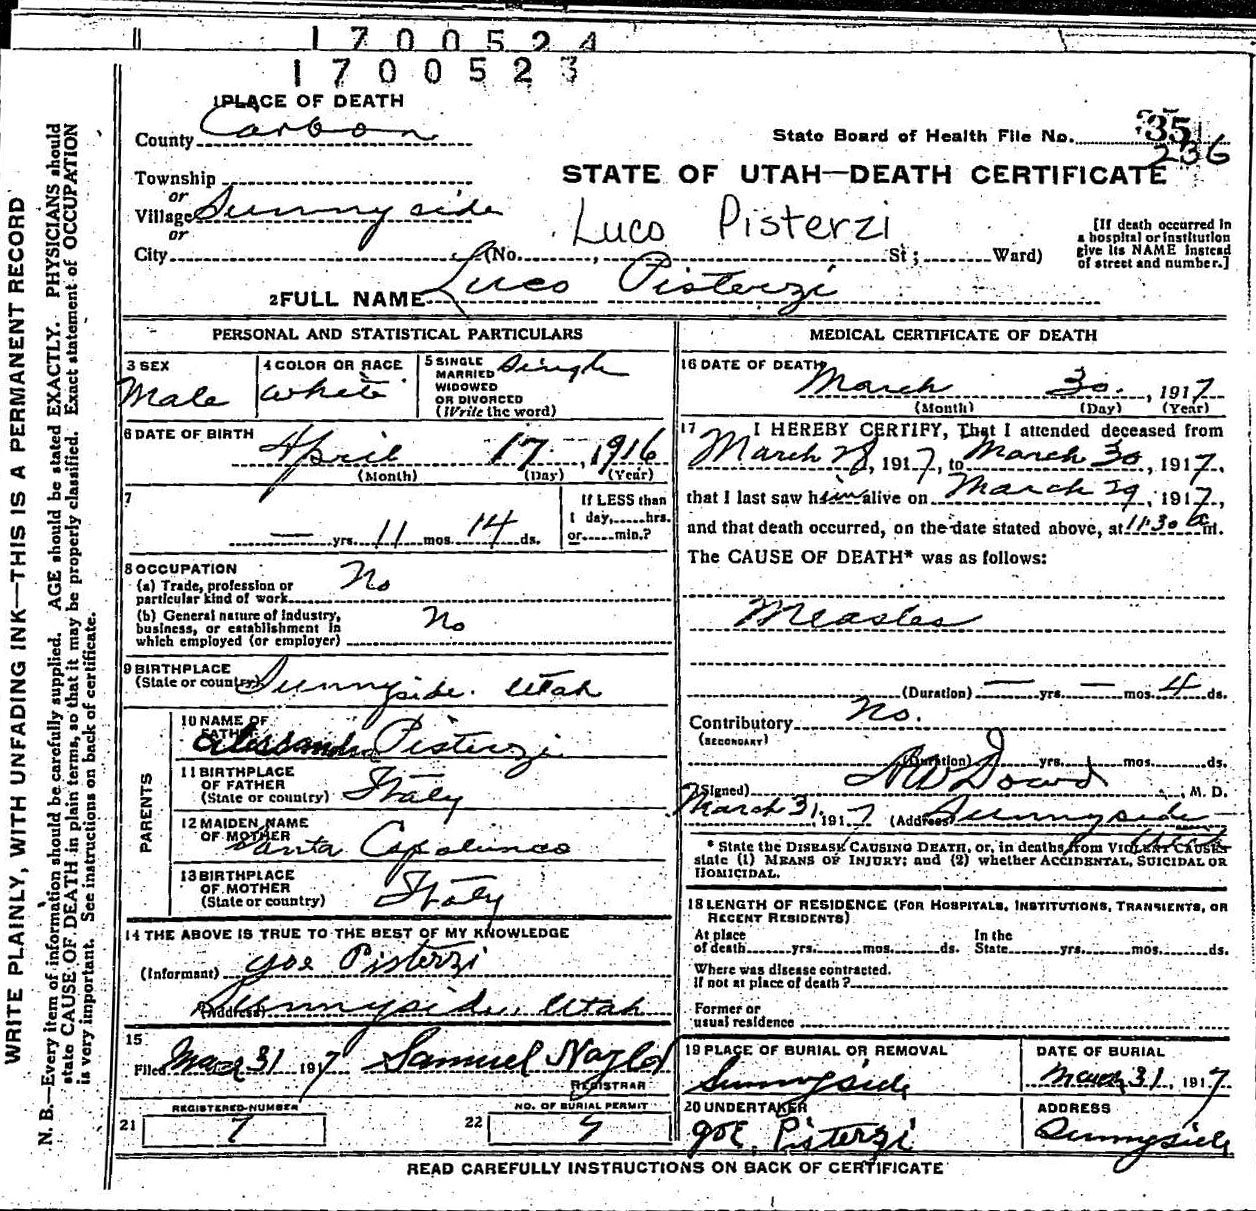 1700524
1700523
1 PLACE OF DEATH
County Carbon
State Board of Health File No. 35
236
Township
or
Village Sunnyside
or
City
STATE OF UTAH—DEATH CERTIFICATE
Luco Pisterzi
(No. , St; Ward)
[If death occurred in
a hospital or institution
give its NAME instead
of street and number.]
2 FULL NAME Luco Pisterzi
PERSONAL AND STATISTICAL PARTICULARS
3 SEX
Male
4 COLOR OR RACE
White
5 SINGLE
MARRIED
WIDOWED
OR DIVORCED
(Write the word)
Single
6 DATE OF BIRTH
April 17, 1916
(Month) (Day) (Year)
7
— yrs. 11 mos. 14 ds.
If LESS than
1 day, hrs.
or min.?
8 OCCUPATION
(a) Trade, profession or
particular kind of work No
(b) General nature of industry,
business, or establishment in
which employed (or employer) No
9 BIRTHPLACE
(State or country) Sunnyside. Utah
PARENTS
10 NAME OF
FATHER Alessandro Pisterzi
11 BIRTHPLACE
OF FATHER
(State or country) Italy
12 MAIDEN NAME
OF MOTHER Santa
13 BIRTHPLACE
OF MOTHER
(State or country) Italy
14 THE ABOVE IS TRUE TO THE BEST OF MY KNOWLEDGE
(Informant) Joe Pisterzi
(Address) Sunnyside, Utah
15
Filed Mar 31 1917 Samuel Naylor
REGISTRAR
21 REGISTERED NUMBER
7
22 NO. OF BURIAL PERMIT
MEDICAL CERTIFICATE OF DEATH
16 DATE OF DEATH
March 30, 1917
(Month) (Day) (Year)
17 I HEREBY CERTIFY, That I attended deceased from
March 28, 1917, to March 30, 1917,
that I last saw him alive on March 29, 1917,
and that death occurred, on the date stated above, at 11:30 a m.
The CAUSE OF DEATH* was as follows:
Measles
(Duration) — yrs. — mos. 4 ds.
Contributory No.
(SECONDARY)
(Duration) yrs. mos. ds.
(Signed) Dowd, M. D.
March 31, 1917 (Address) Sunnyside
Utah
* State the DISEASE CAUSING DEATH, or, in deaths from VIOLENT CAUSES
state (1) MEANS OF INJURY; and (2) whether ACCIDENTAL, SUICIDAL OR
HOMICIDAL.
18 LENGTH OF RESIDENCE (FOR HOSPITALS, INSTITUTIONS, TRANSIENTS, OR
RECENT RESIDENTS)
At place
of death yrs. mos. ds.
In the
State yrs. mos. ds.
Where was disease contracted.
If not at place of death?
Former or
usual residence
19 PLACE OF BURIAL OR REMOVAL
Sunnyside
DATE OF BURIAL
March 31, 1917
20 UNDERTAKER
Joe, Pisterzi
ADDRESS
Sunnyside
READ CAREFULLY INSTRUCTIONS ON BACK OF CERTIFICATE
WRITE PLAINLY, WITH UNFADING INK—THIS IS A PERMANENT RECORD
N. B.—Every item of information should be carefully supplied. AGE should be stated EXACTLY. PHYSICIANS should
state CAUSE OF DEATH in plain terms, so that it may be properly classified. Exact statement of OCCUPATION
is very important. See instructions on back of certificate.